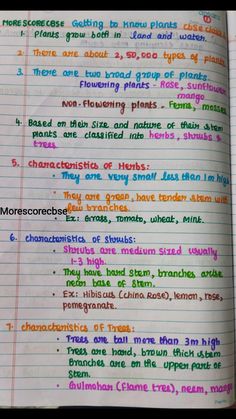 MORESCORECBSE Getting to know plants cbse class 6
1. Plants grow both in land and water.
2. There are about 2,50,000 types of plants
3. There are two broad group of plants.
Flowering plants - Rose, sunflower,
mango
Non-Flowering plants - Ferns, mosses
4. Based on their size and nature of their stem
plants are classified into herbs, shrubs &
trees.
5. characteristics of Herbs:
• They are very small less than 1m high
• They are green, have tender stem with
few branches.
Morescorecbse
• Ex: Grass, Tomato, wheat, Mint.
6. characteristics of Shrubs:
• Shrubs are medium sized usually
1-3 high.
• They have hard stem, branches arise
near base of stem.
• Ex: Hibiscus (China Rose), lemon, rose,
pomegranate.
7. characteristics of Trees:
• Trees are tall more than 3m high
• Trees are hard, brown thick stem.
Branches are on the upper part of
stem.
• Gulmohar (flame tree), neem, mango